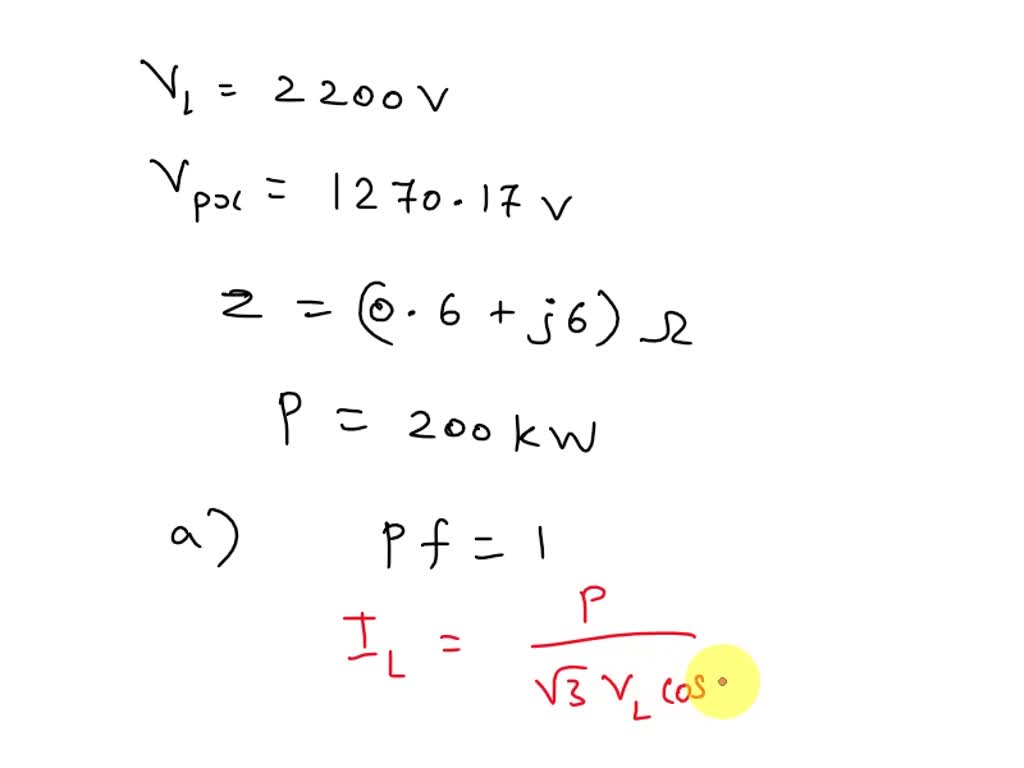 V_L = 2200 V
V_ph = 1270.17 V
Z = (0.6 + j6) Ω
P = 200 kW
a) Pf = 1
I_L = P / √3 V_L cos